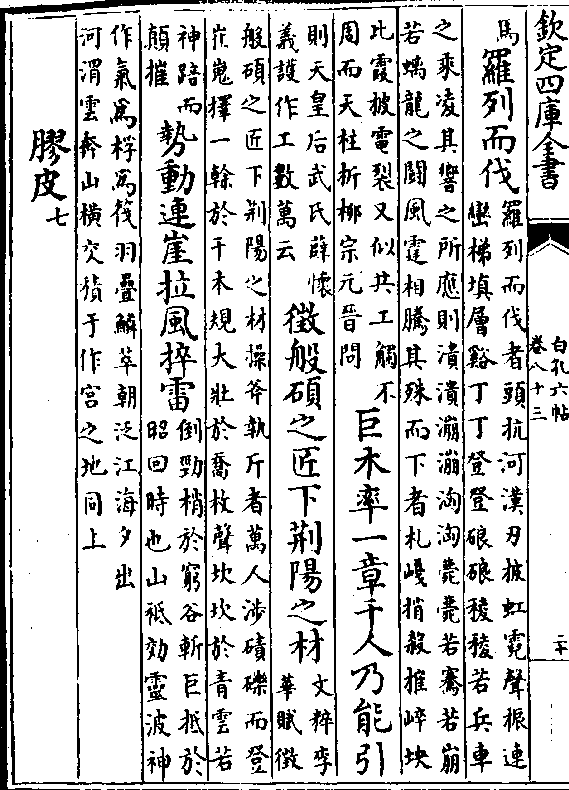 欽定四庫全書
白孔六帖
卷八十三
二十
馬
羅列而伐
羅列而伐者頭抗河漢刃披虹霓聲振連
巒梯填層谿丁丁登登硠硠稜稜若兵車
之乘凌其響之所應則潰潰漰漰洶洶薨薨若騫若崩
若螭龍之鬭風霆相騰其殊而下者札嶘捎殺摧崪坱
比霞披電裂又似共工觸不
周而天柱折栁宗元晉問
巨木率一章千人乃能引
則天皇后武氏薛懷
義護作工數萬云
徵般碩之匠下荆陽之材
文粹李
華賦徵
般碩之匠下荆陽之材操斧執斤者萬人涉磧礫而登
崔嵬擇一榦於千木規大壯於喬枚聲坎坎於青雲若
神踣而
顛摧
勢動連崖拉風捽雷
倒勁梢於窮谷斬巨抵於
昭回時也山祗効靈波神
作氣為桴為筏羽疊鱗萃朝泛江海夕出
河渭雲奔山横交積于作宫之地同上
膠皮七